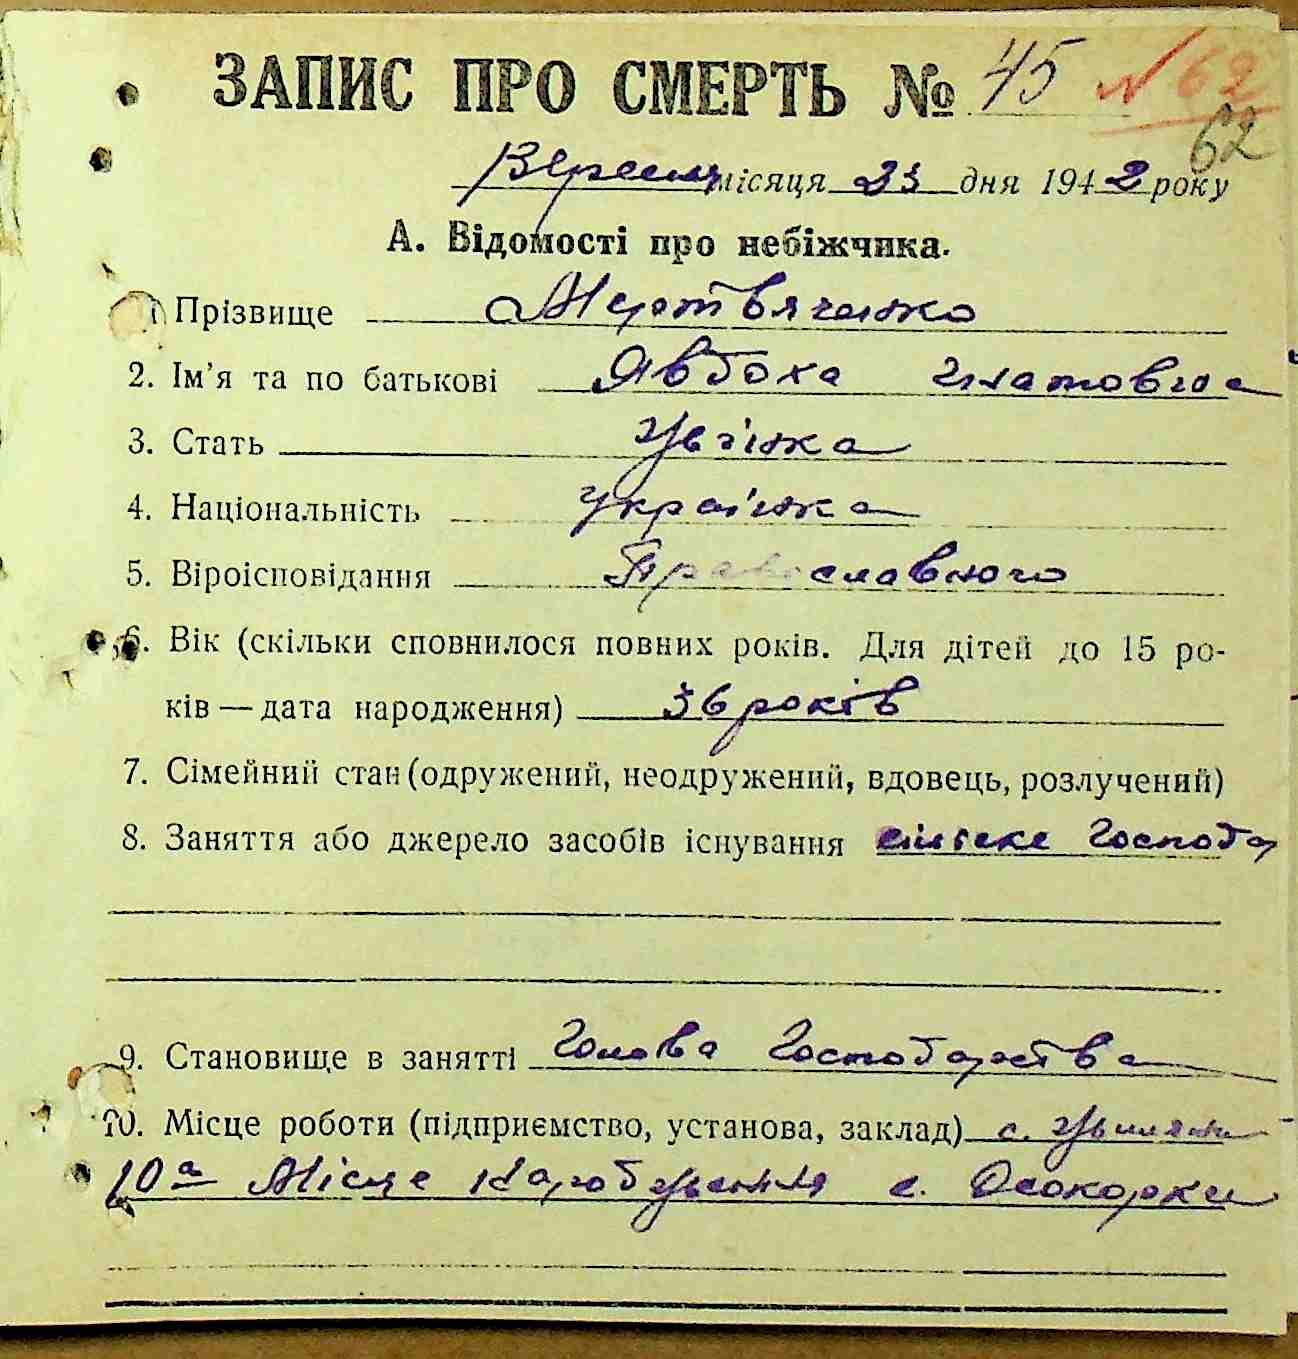 ЗАПИС ПРО СМЕРТЬ № 45 N 62
62
Вересня місяця 23 дня 1942 року
А. Відомості про небіжчика.
1 Прізвище Мертвяченко
2. Ім'я та по батькові Явдоха Гнатовна
3. Стать жінка
4. Національність українка
5. Віроісповідання Православного
6. Вік (скільки сповнилося повних років. Для дітей до 15 ро-
ків — дата народження) 36 років
7. Сімейний стан (одружений, неодружений, вдовець, розлучений)
8. Заняття або джерело засобів існування сільське Господар
9. Становище в занятті Голова Господарства
10. Місце роботи (підприємство, установа, заклад) с.
10а Місце Народження с. Осокорки